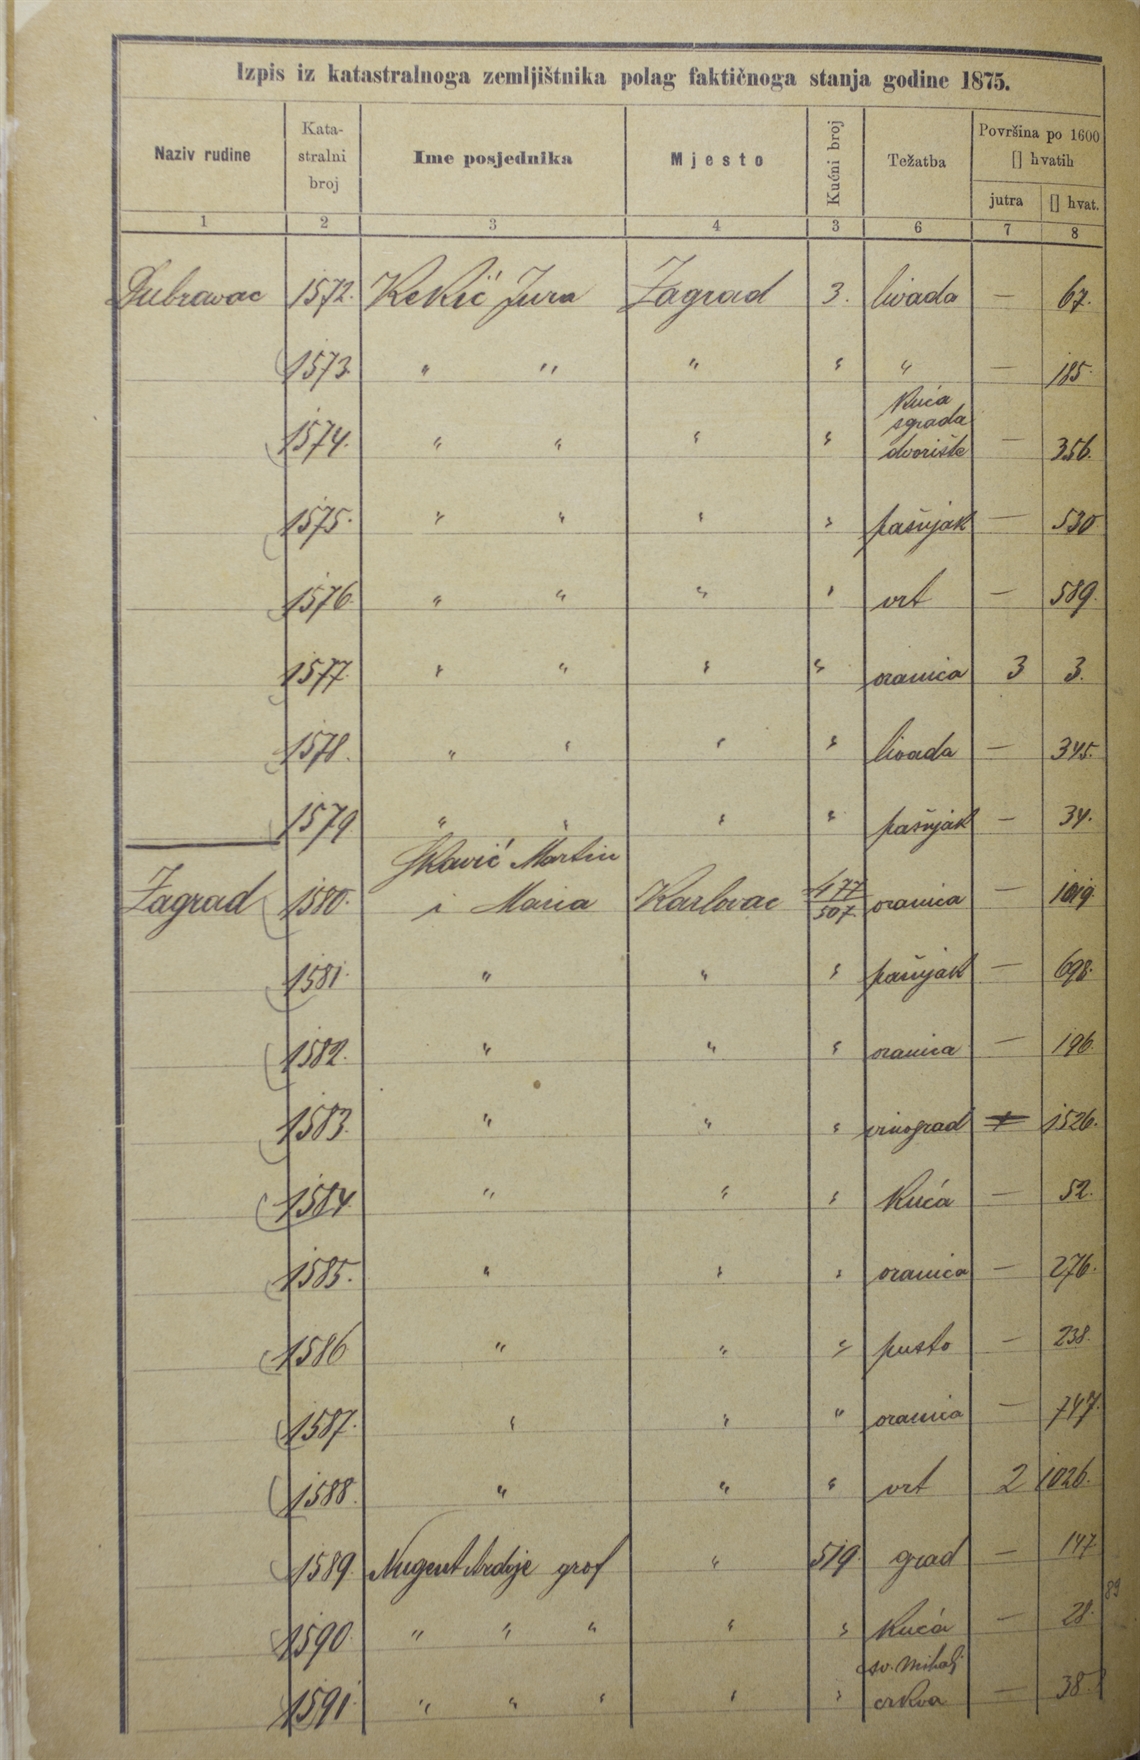 Izpis iz katastralnoga zemljištnika polag faktičnoga stanja godine 1875.
Naziv rudine
Kata-
stralni
broj
Ime posjednika
Mjesto
Kućni broj
Težatba
Površina po 1600
[] hvatih
jutra [] hvat.
1 2 3 4 3 6 7 8
Dubravac 1572. Kekić Jura Zagrad 3. livada — 67.
1573 " " " " " — 185.
Kuća
sgrada
1574. " " " " dvorište — 356.
1575. " " " " pašnjak — 530
1576. " " " " vrt — 589.
1577 " " " " oranica 3 3.
1578. " " " " livada — 345.
1579 " " " " pašnjak — 34.
Martin
Zagrad 1580. i Maria Karlovac 477 oranica — 1019.
507.
1581. " " " pašnjak — 698.
1582. " " " oranica — 196.
1583. " " " vinograd 1526.
1584. " " " Kuća — 52.
1585. " " " oranica — 276.
1586 " " " pusto — 238.
1587. " " " oranica — 747.
1588. " " " vrt 2 1026.
1589. Nugent grof " 519. grad — 147
1590. " " " " " Kuća — 28. 89
sv. Mihalj
1591. " " " " " crkva — 38.